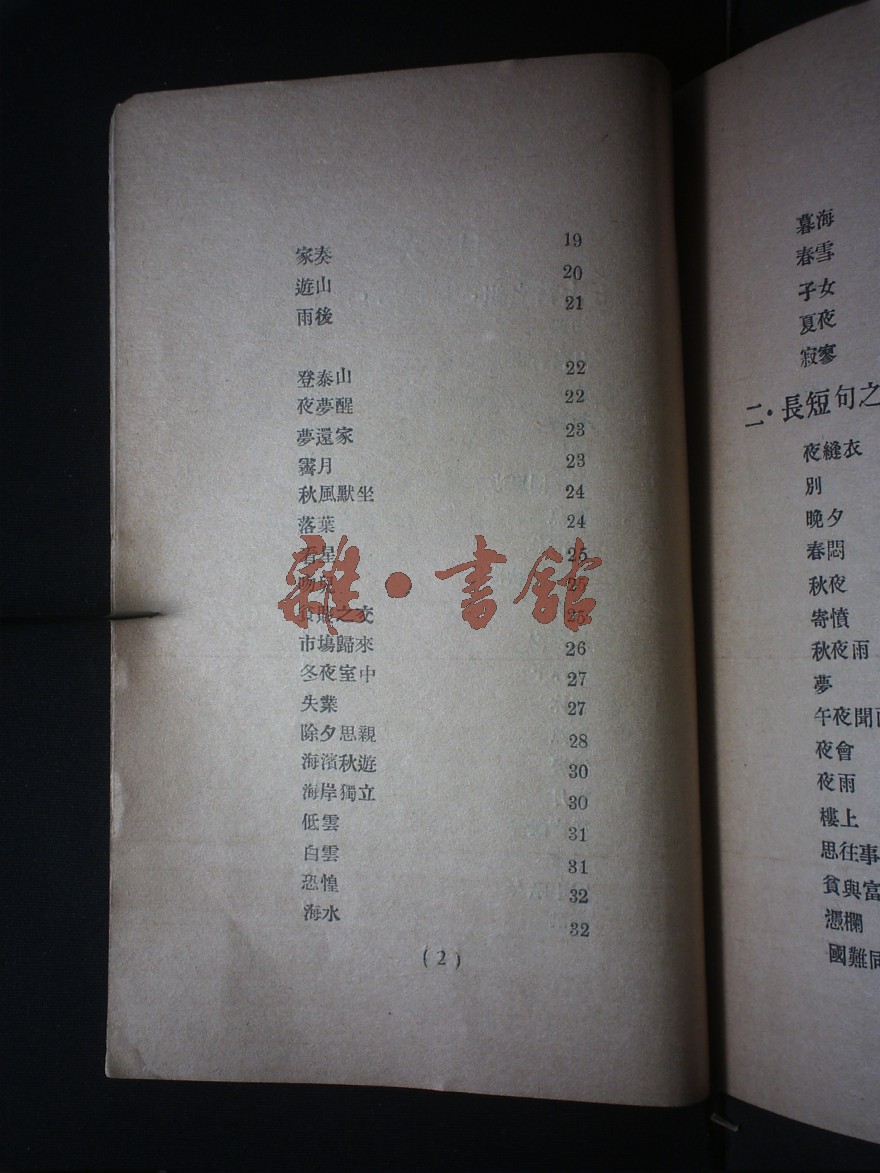 家奏 19
遊山 20
雨後 21
登泰山 22
夜夢醒 22
夢還家 23
霽月 23
秋風默坐 24
落葉 24
看星 25
25
之交 25
市場歸來 26
冬夜室中 27
失業 27
除夕思親 28
海濱秋遊 30
海岸獨立 30
低雲 31
白雲 31
恐惶 32
海水 32
(2)
雜·書館
暮海
春雪
子女
夏夜
寂寥
二·長短句之
夜縫衣
別
晚夕
春悶
秋夜
寄憤
秋夜雨
夢
午夜聞
夜會
夜雨
樓上
思往事
貧與富
憑欄
國難同